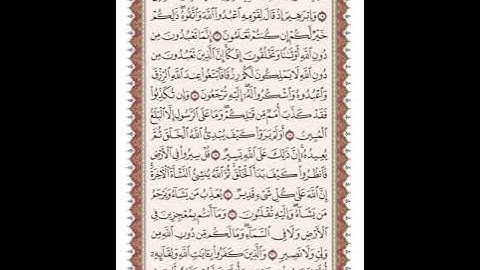 وَإِبْرَٰهِيمَ إِذْ قَالَ لِقَوْمِهِ ٱعْبُدُوا۟ ٱللَّهَ وَٱتَّقُوهُ ۖ ذَٰلِكُمْ
خَيْرٌ لَّكُمْ إِن كُنتُمْ تَعْلَمُونَ إِنَّمَا تَعْبُدُونَ مِن
دُونِ ٱللَّهِ أَوْثَٰنًا وَتَخْلُقُونَ إِفْكًا ۚ إِنَّ ٱلَّذِينَ تَعْبُدُونَ مِن
دُونِ ٱللَّهِ لَا يَمْلِكُونَ لَكُمْ رِزْقًا فَٱبْتَغُوا۟ عِندَ ٱللَّهِ ٱلرِّزْقَ
وَٱعْبُدُوهُ وَٱشْكُرُوا۟ لَهُۥٓ ۖ إِلَيْهِ تُرْجَعُونَ وَإِن تُكَذِّبُوا۟
فَقَدْ كَذَّبَ أُمَمٌ مِّن قَبْلِكُمْ ۖ وَمَا عَلَى ٱلرَّسُولِ إِلَّا ٱلْبَلَٰغُ
ٱلْمُبِينُ أَوَلَمْ يَرَوْا۟ كَيْفَ يُبْدِئُ ٱللَّهُ ٱلْخَلْقَ ثُمَّ
يُعِيدُهُۥٓ ۚ إِنَّ ذَٰلِكَ عَلَى ٱللَّهِ يَسِيرٌ قُلْ سِيرُوا۟ فِى ٱلْأَرْضِ
فَٱنظُرُوا۟ كَيْفَ بَدَأَ ٱلْخَلْقَ ۚ ثُمَّ ٱللَّهُ يُنشِئُ ٱلنَّشْأَةَ ٱلْءَاخِرَةَ ۚ
إِنَّ ٱللَّهَ عَلَىٰ كُلِّ شَىْءٍ قَدِيرٌ يُعَذِّبُ مَن يَشَآءُ وَيَرْحَمُ
مَن يَشَآءُ ۖ وَإِلَيْهِ تُقْلَبُونَ وَمَآ أَنتُم بِمُعْجِزِينَ فِى
ٱلْأَرْضِ وَلَا فِى ٱلسَّمَآءِ ۖ وَمَا لَكُم مِّن دُونِ ٱللَّهِ مِن
وَلِىٍّ وَلَا نَصِيرٍ وَٱلَّذِينَ كَفَرُوا۟ بِـَٔايَٰتِ ٱللَّهِ وَلِقَآئِهِۦٓ